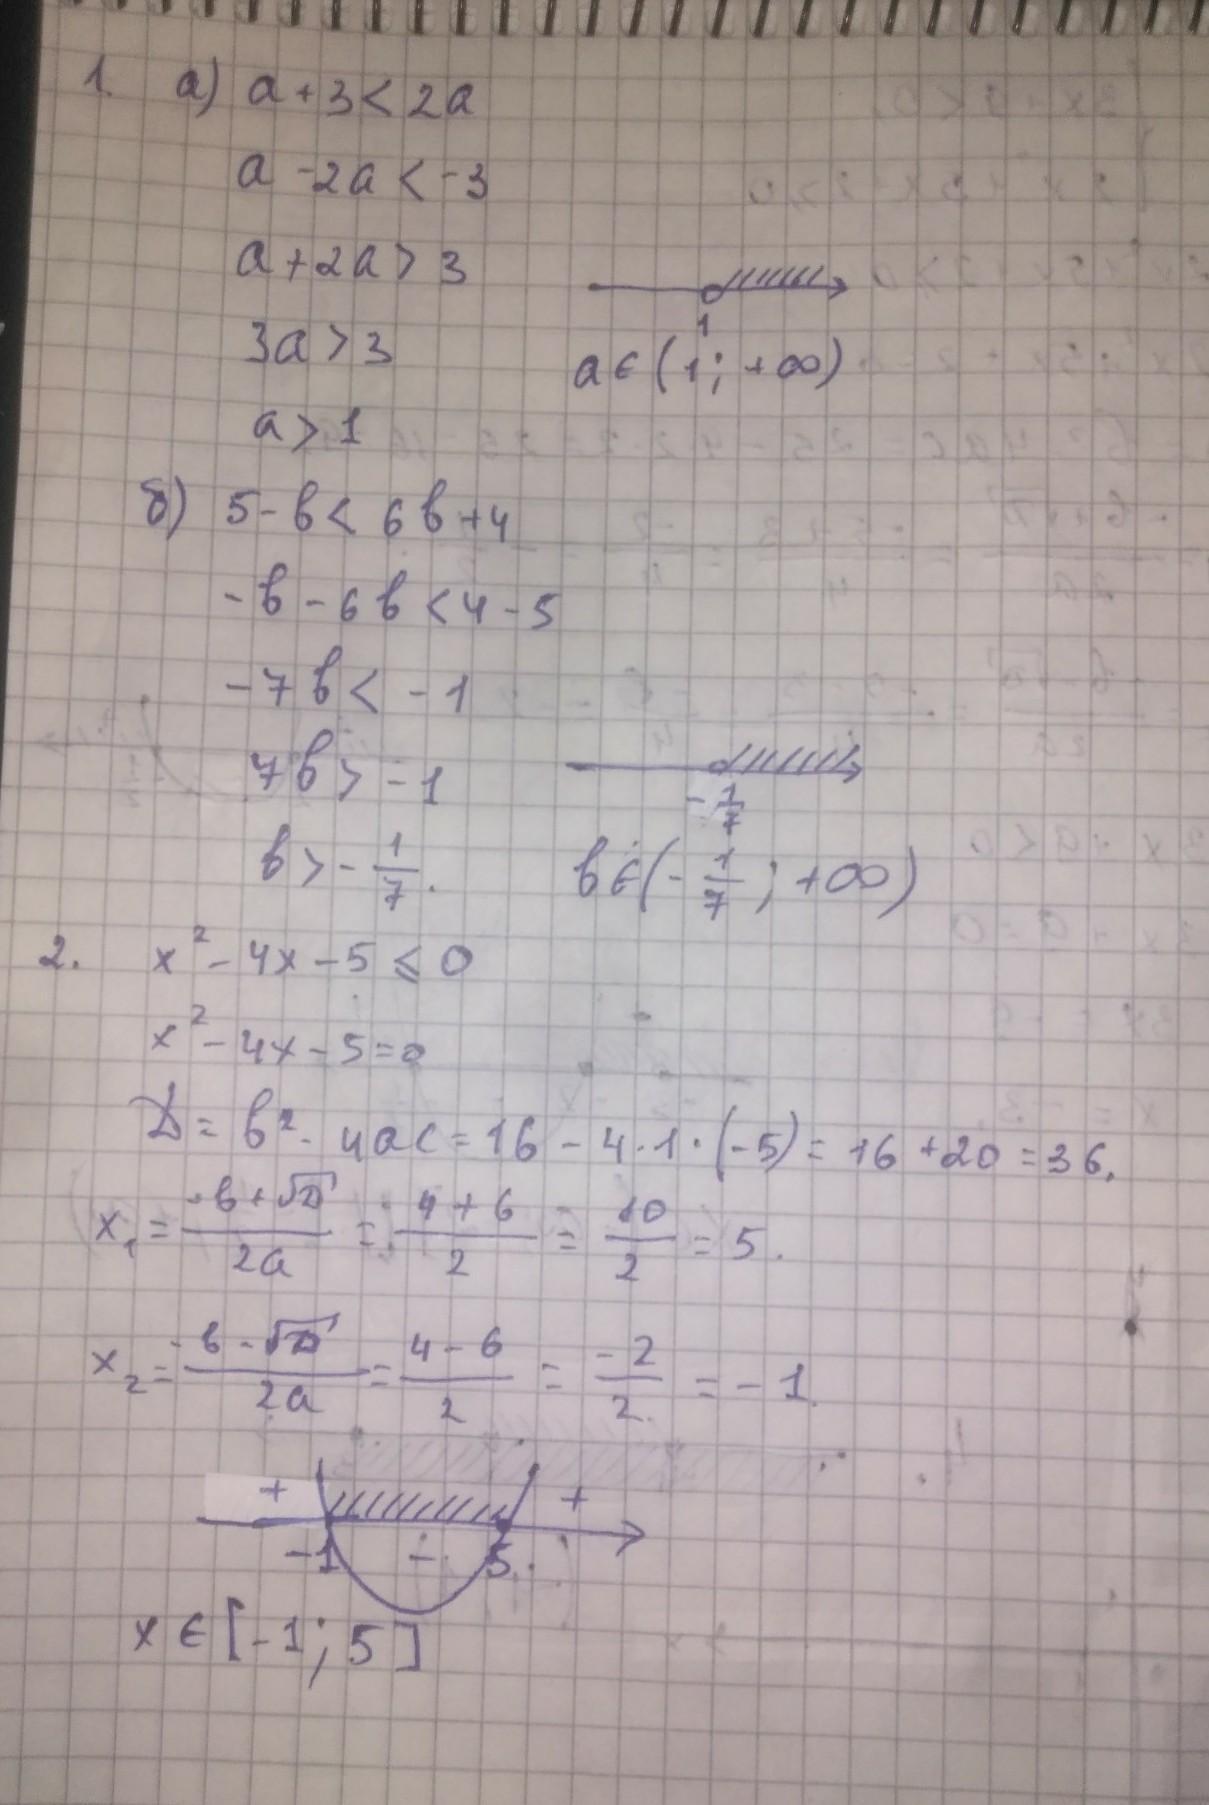 1. а) a + 3 < 2a
a - 2a < -3
a + 2a > 3
3a > 3
1
a ∈ (1; +∞)
a > 1
б) 5 - b < 6b + 4
-b - 6b < 4 - 5
-7b < -1
7b > -1
-1/7
b > -1/7.
b ∈ (-1/7; +∞)
2. x² - 4x - 5 ⩽ 0
x² - 4x - 5 = 0
D = b² - 4ac = 16 - 4·1·(-5) = 16 + 20 = 36.
x₁ = (-b + √D)/2a = (4 + 6)/2 = 10/2 = 5.
x₂ = (-b - √D)/2a = (4 - 6)/2 = -2/2 = -1.
+ +
-1 - 5
x ∈ [-1; 5]